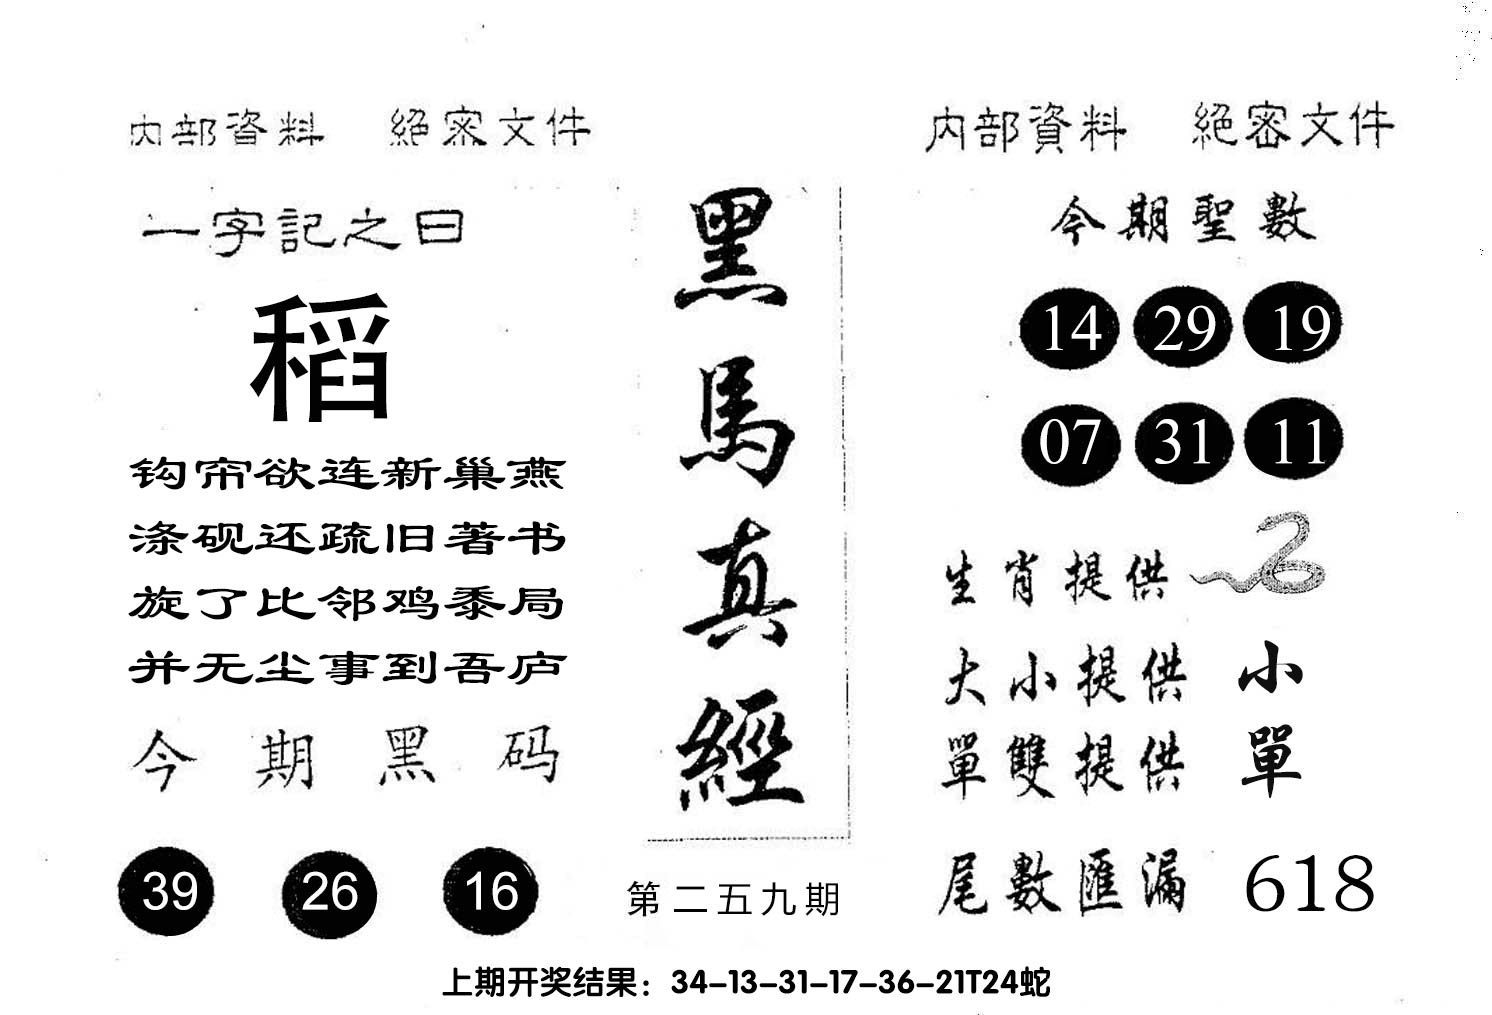 内部資料 絕密文件
一字記之曰
稻
钩帘欲连新巢燕
涤砚还疏旧著书
旋了比邻鸡黍局
并无尘事到吾庐
今期黑码
39 26 16
黑馬真經
第二五九期
内部資料 絕密文件
今期聖數
14 29 19
07 31 11
生肖提供
大小提供 小
單雙提供 單
尾數匯漏 618
上期开奖结果：34-13-31-17-36-21T24蛇